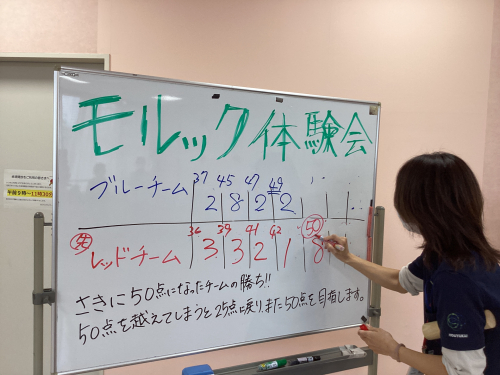 モルック体験会
37 45 47 49
ブルーチーム 2 8 2 2
36 39 41 42 50
先 レッドチーム 3 3 2 1 8
さきに50点になったチームの勝ち!!
50点を越えてしまうと25点に戻り、また50点を目指します。
午前9時~11時30分